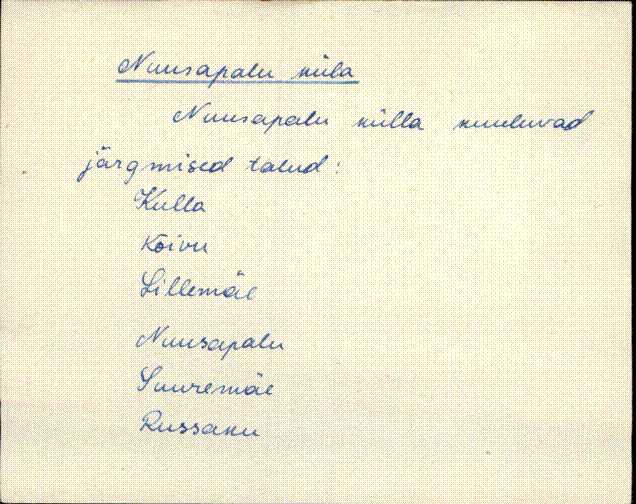 Nuusapalu küla
Nuusapalu külla kuuluvad
järgmised talud:
Kulla
Koivu
Lillemäe
Nuusapalu
Suuremäe
Russaku